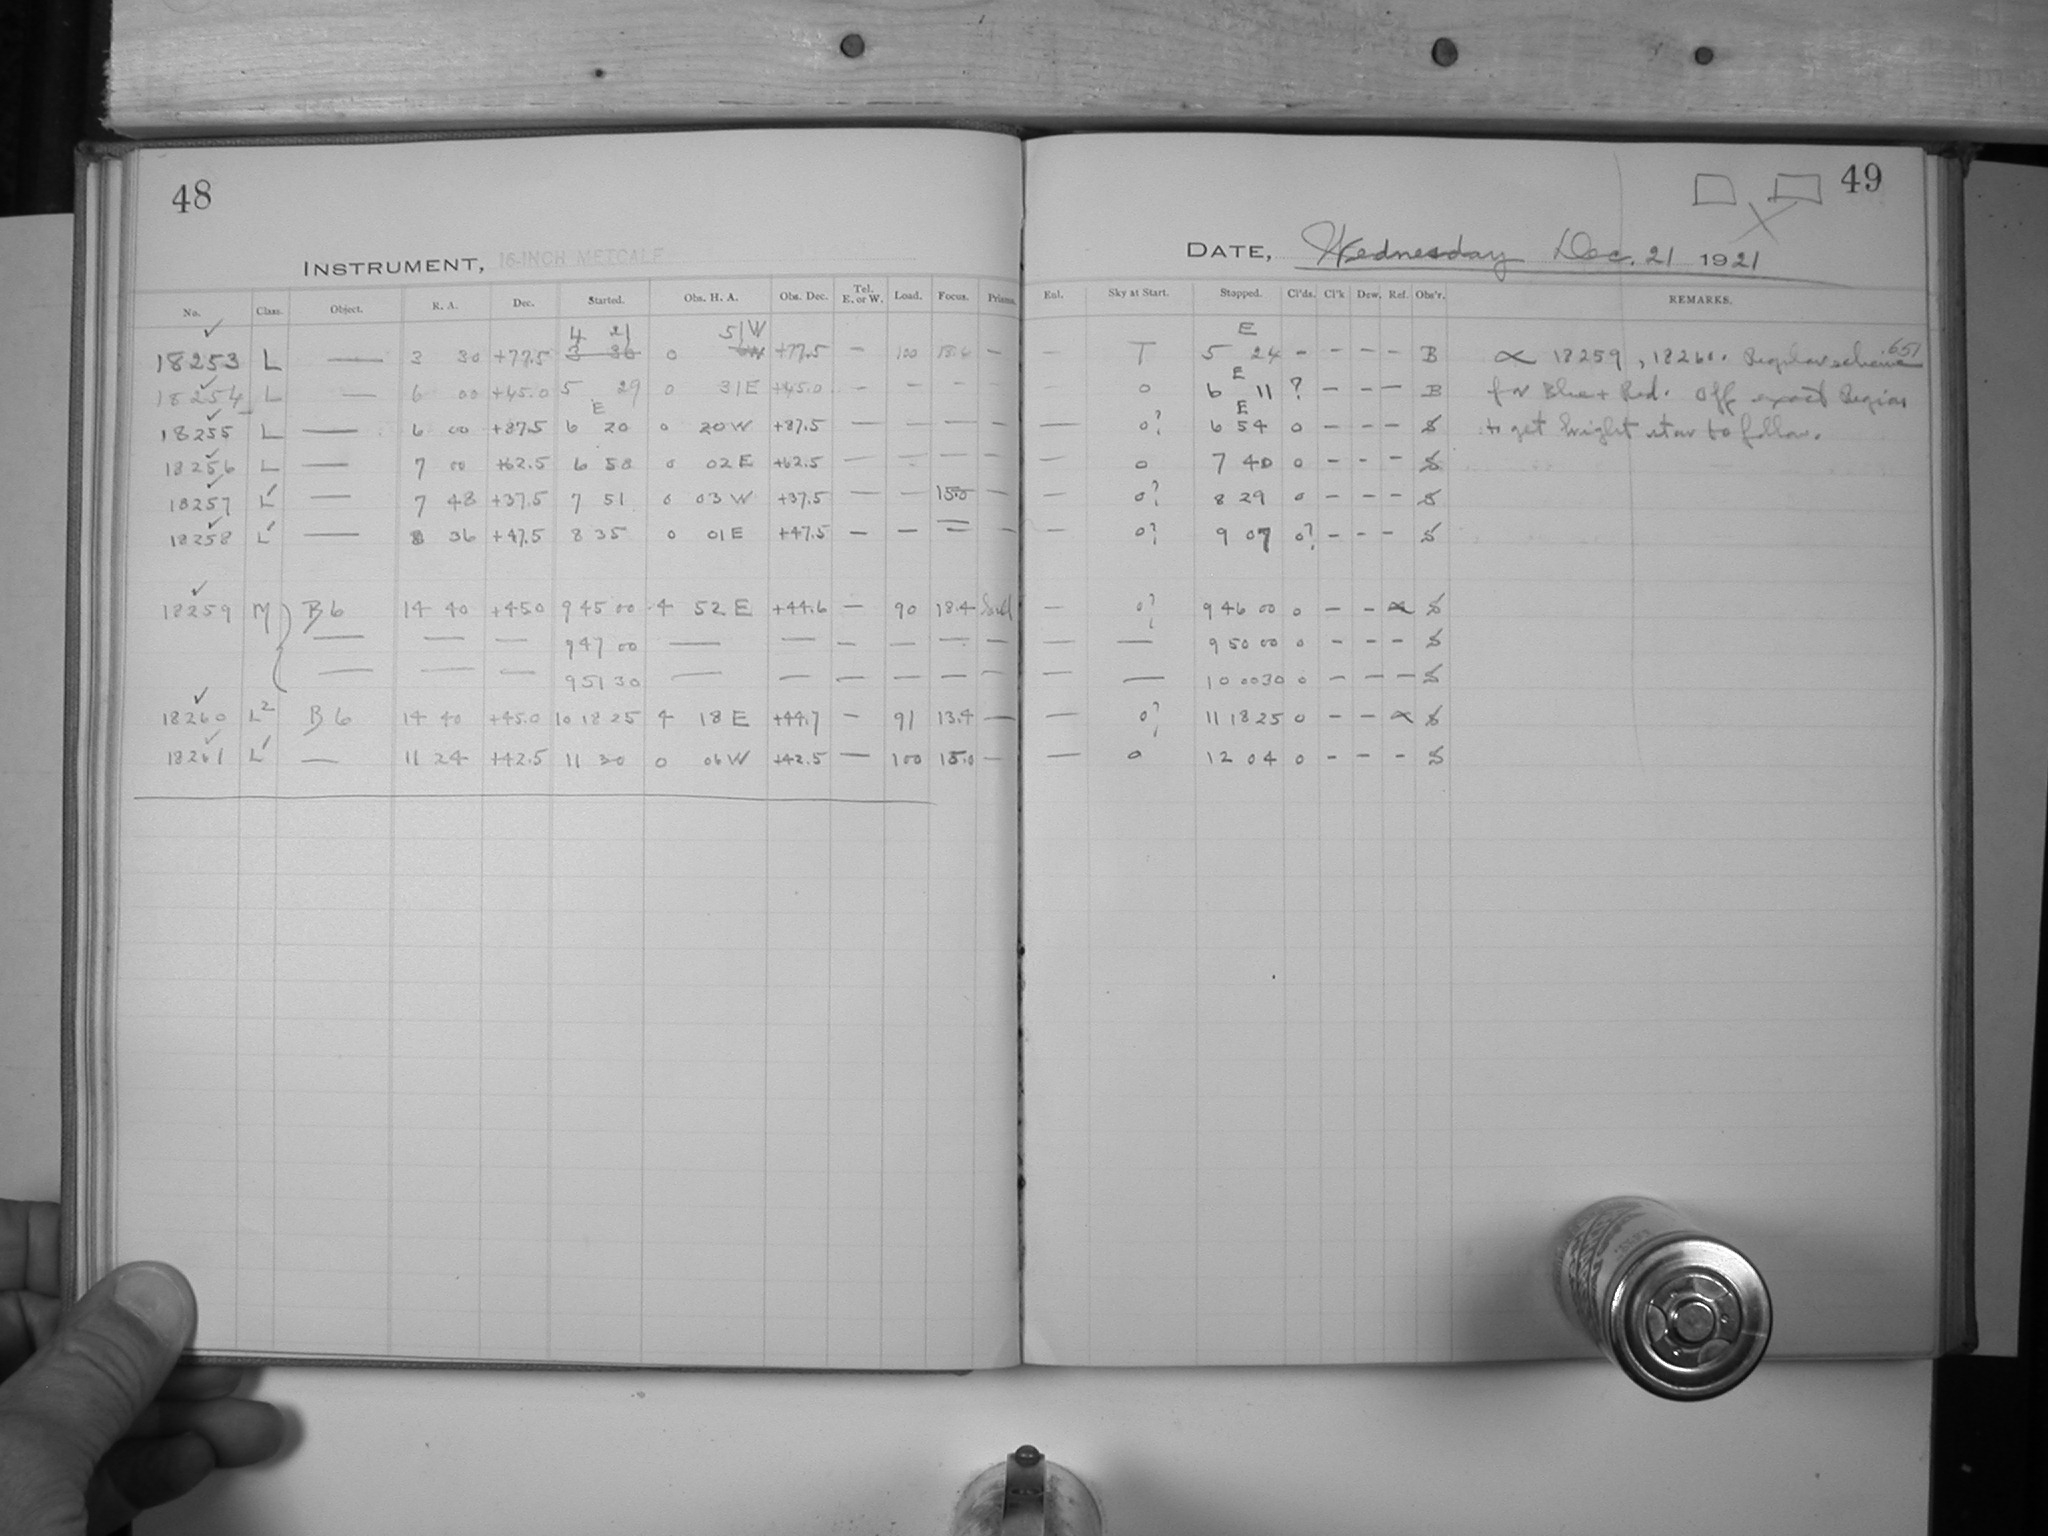 48
INSTRUMENT, 16-INCH METCALF
No. Class. Object. R. A. Dec. Started. Obs. H. A. Obs. Dec. Tel. E. or W. Load. Focus. Prisms.
4 21 51W
18253 L — 3 30 +77.5 3 36 0 +77.5 — 100 18.4 —
18254 L — 6 00 +45.0 5 29 0 31E +45.0 — — — —
E
18255 L — 6 00 +37.5 6 20 0 20W +37.5 — — — —
18256 L — 7 00 +62.5 6 58 0 02E +62.5 — — — —
18257 L' — 7 48 +37.5 7 51 0 03W +37.5 — — 15.0 —
18258 L' — 8 36 +47.5 8 35 0 01E +47.5 — — — —
18259 M B6 14 40 +45.0 9 45 00 4 52E +44.6 — 90 18.4
— — — 9 47 00 — — — — — —
— — — 9 51 30 — — — — — —
18260 L2 B6 14 40 +45.0 10 18 25 4 18E +44.7 — 91 13.4 —
18261 L' — 11 24 +42.5 11 30 0 06W +42.5 — 100 15.0 —
49
DATE, Wednesday Dec. 21 1921
Enl. Sky at Start. Stopped. Cl'ds. Cl'k Dew. Ref. Obs'r. REMARKS.
E
— T 5 24 — — — — B ∝ 18259, 18260. Regular scheme 651
E
— 0 6 11 ? — — — B for Blue + Red. Off exact Region
E
— 0? 6 54 0 — — — S to get bright star to follow.
— 0 7 40 0 — — — S
— 0? 8 29 0 — — — S
— 0? 9 07 0? — — — S
— 0? 9 46 00 0 — — ∝ S
— — 9 50 00 0 — — — S
— — 10 00 30 0 — — — S
— 0? 11 18 25 0 — — ∝ S
— 0 12 04 0 — — — S